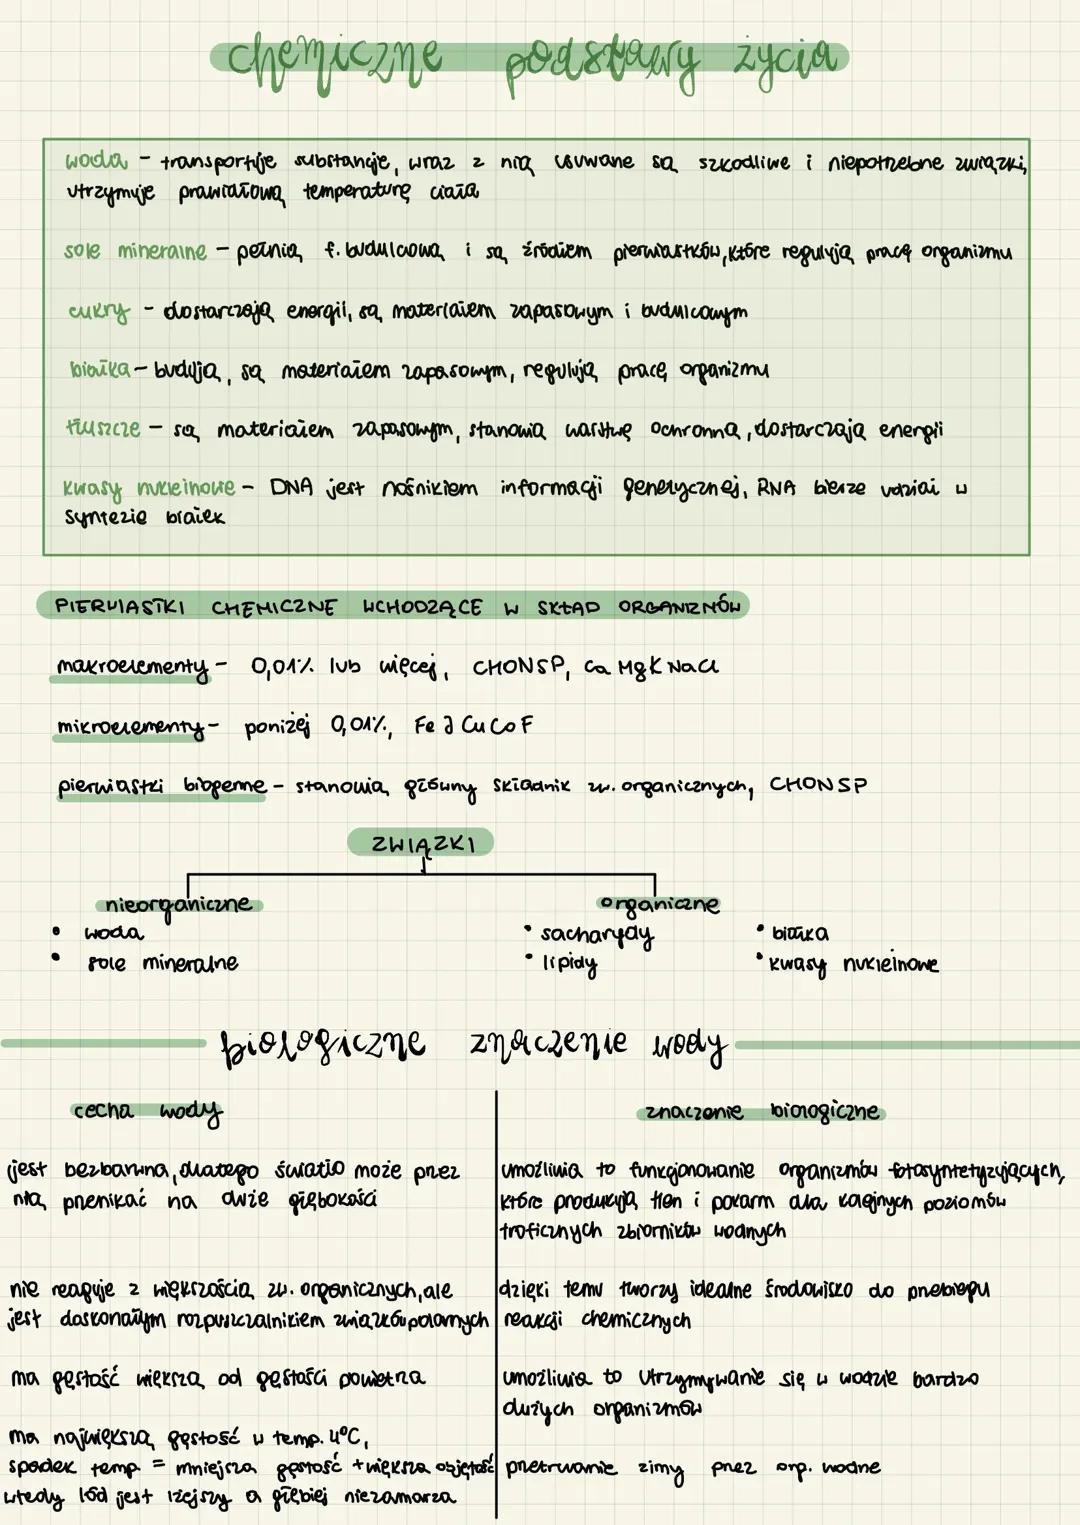 chemiczne podstawy życia
woda - transportuje substancje, wraz z nią usuwane są szkodliwe i niepotrzebne związki,
utrzymuje prawidłową temperaturę ciała
sole mineralne - pełnią f. budulcową i są źródłem pierwiastków, które regulują pracę organizmu
cukry - dostarczają energii, są materiałem zapasowym i budulcowym
białka - budują, są materiałem zapasowym, regulują pracę organizmu
tłuszcze - są materiałem zapasowym, stanowią warstwę ochronną, dostarczają energii
kwasy nukleinowe - DNA jest nośnikiem informacji genetycznej, RNA bierze udział w
syntezie białek
PIERWIASTKI CHEMICZNE WCHODZĄCE W SKŁAD ORGANIZMÓW
makroelementy - 0,01% lub więcej, CHONSP, Ca Mg K Na Cl
mikroelementy - poniżej 0,01%, Fe J Cu Co F
pierwiastki biogenne - stanowią główny składnik zw. organicznych, CHONSP
ZWIĄZKI
nieorganiczne organiczne
• woda • sacharydy • białka
• sole mineralne • lipidy • kwasy nukleinowe
biologiczne znaczenie wody
cecha wody znaczenie biologiczne
jest bezbarwna, dlatego światło może przez
nią przenikać na duże głębokości
umożliwia to funkcjonowanie organizmów fotosyntetyzujących,
które produkują tlen i pokarm dla kolejnych poziomów
troficznych zbiorników wodnych
nie reaguje z większością zw. organicznych, ale
jest doskonałym rozpuszczalnikiem związków polarnych
dzięki temu tworzy idealne środowisko do przebiegu
reakcji chemicznych
ma gęstość większą od gęstości powietrza
umożliwia to utrzymywanie się w wodzie bardzo
dużych organizmów
ma największą gęstość w temp. 4°C,
spadek temp. = mniejsza gęstość + większa objętość
wtedy lód jest lżejszy a głębiej niezamarza
przetrwanie zimy przez org. wodne